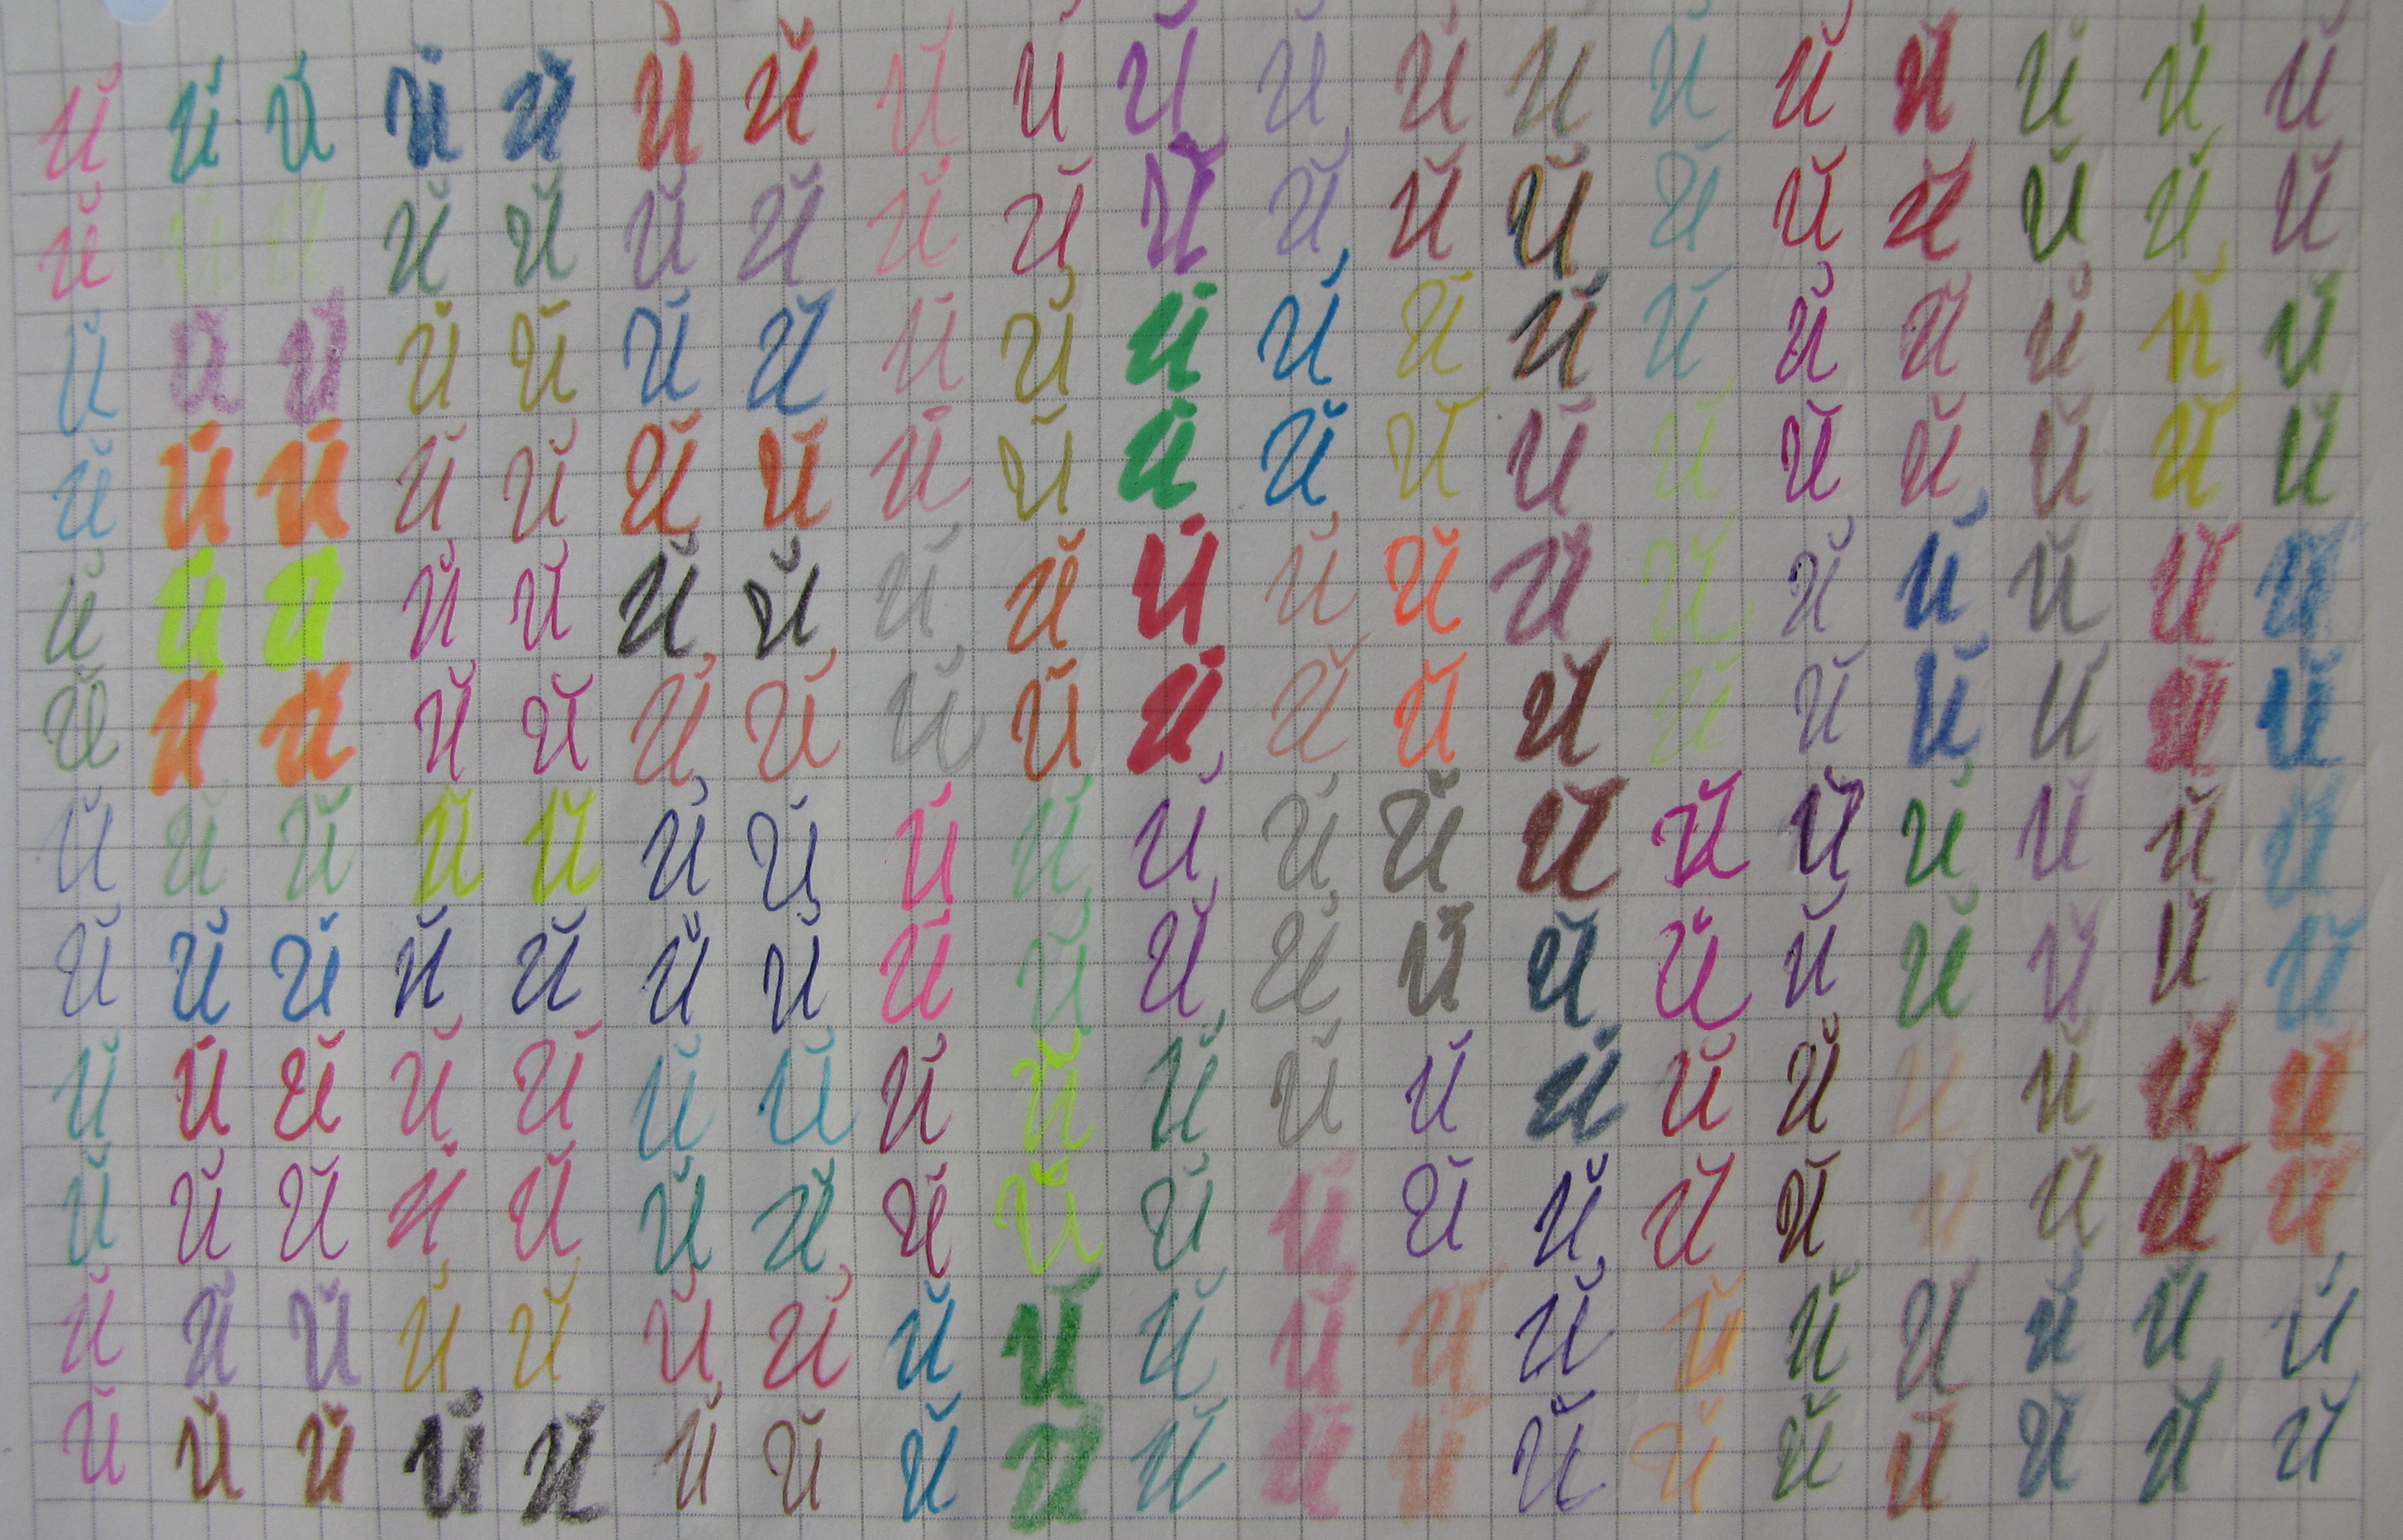 Й Й Й Й Й Й Й Й Й Й Й Й Й Й Й Й Й Й Й
Й Й Й Й Й Й Й Й Й Й Й Й Й Й Й Й Й Й Й
Й Й Й Й Й Й Й Й Й Й Й Й Й Й Й Й Й Й Й
Й Й Й Й Й Й Й Й Й Й Й Й Й Й Й Й Й Й Й
Й Й Й Й Й Й Й Й Й Й Й Й Й Й Й Й Й Й Й
Й Й Й Й Й Й Й Й Й Й Й Й Й Й Й Й Й Й Й
Й Й Й Й Й Й Й Й Й Й Й Й Й Й Й Й Й Й Й
Й Й Й Й Й Й Й Й Й Й Й Й Й Й Й Й Й Й Й
Й Й Й Й Й Й Й Й Й Й Й Й Й Й Й Й Й Й Й
Й Й Й Й Й Й Й Й Й Й Й Й Й Й Й Й Й Й Й
Й Й Й Й Й Й Й Й Й Й Й Й Й Й Й Й Й Й Й
Й Й Й Й Й Й Й Й Й Й Й Й Й Й Й Й Й Й Й